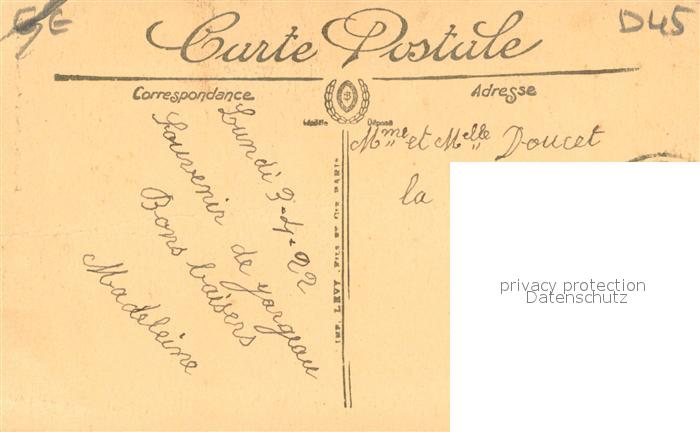 D45
Carte Postale
Correspondance
Adresse
Modèle Déposé
Lundi 3-4-22
Souvenir de Jargeau
Bons baisers
Madeleine
IMP. LEVY FILS ET CIE PARIS
Mme et Melle Doucet
la
privacy protection
Datenschutz